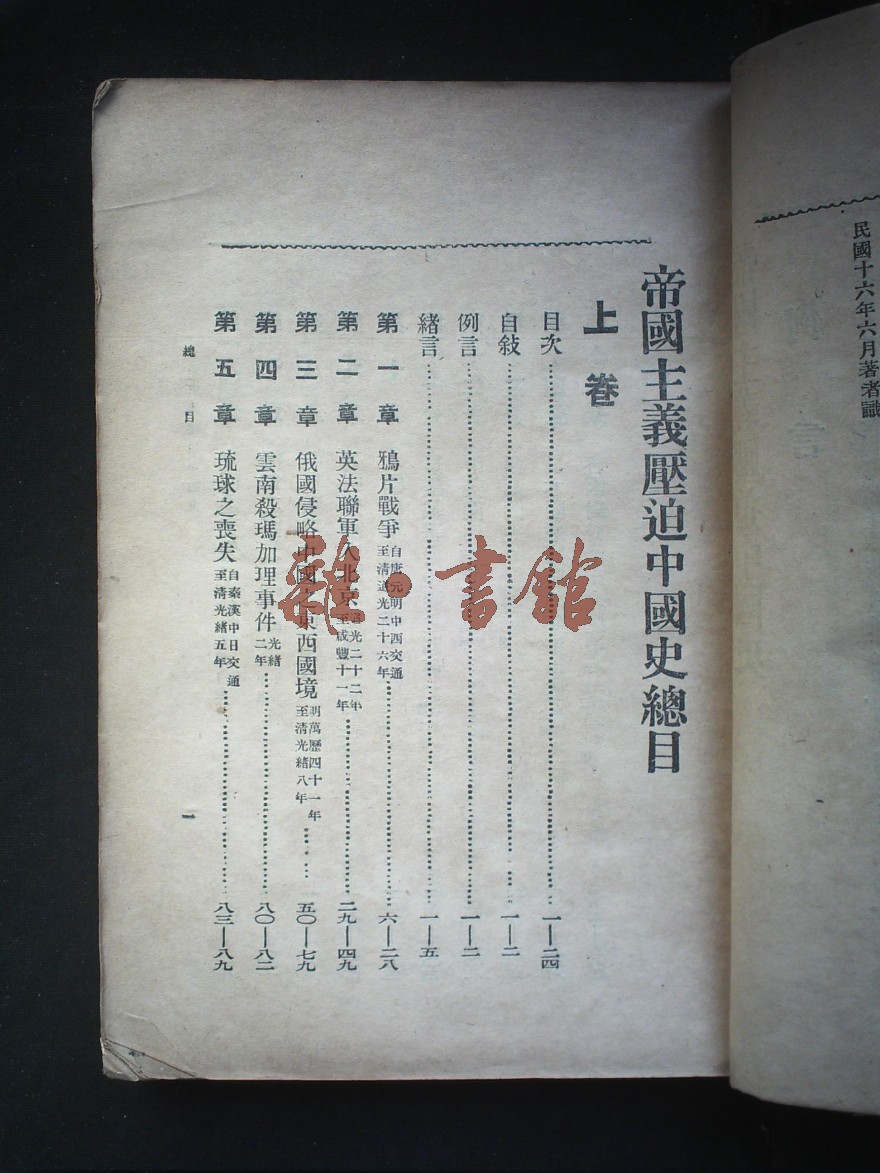 民國十六年六月著者識
帝國主義壓迫中國史總目
上卷
目次……一—二四
自敍……一—二
例言……一—二
緒言……一—五
第一章 鴉片戰爭 自唐元明中西交通至清道光二十六年……六—二八
第二章 英法聯軍入北京 道光二十二年至咸豐十一年……二九—四九
第三章 俄國侵略中國 東西國境 明萬歷四十一年至清光緒八年……五〇—七九
第四章 雲南殺瑪加理事件 光緒二年……八〇—八二
第五章 琉球之喪失 自秦漢中日交通至清光緒五年……八三—八九
總目
一
雜·書館